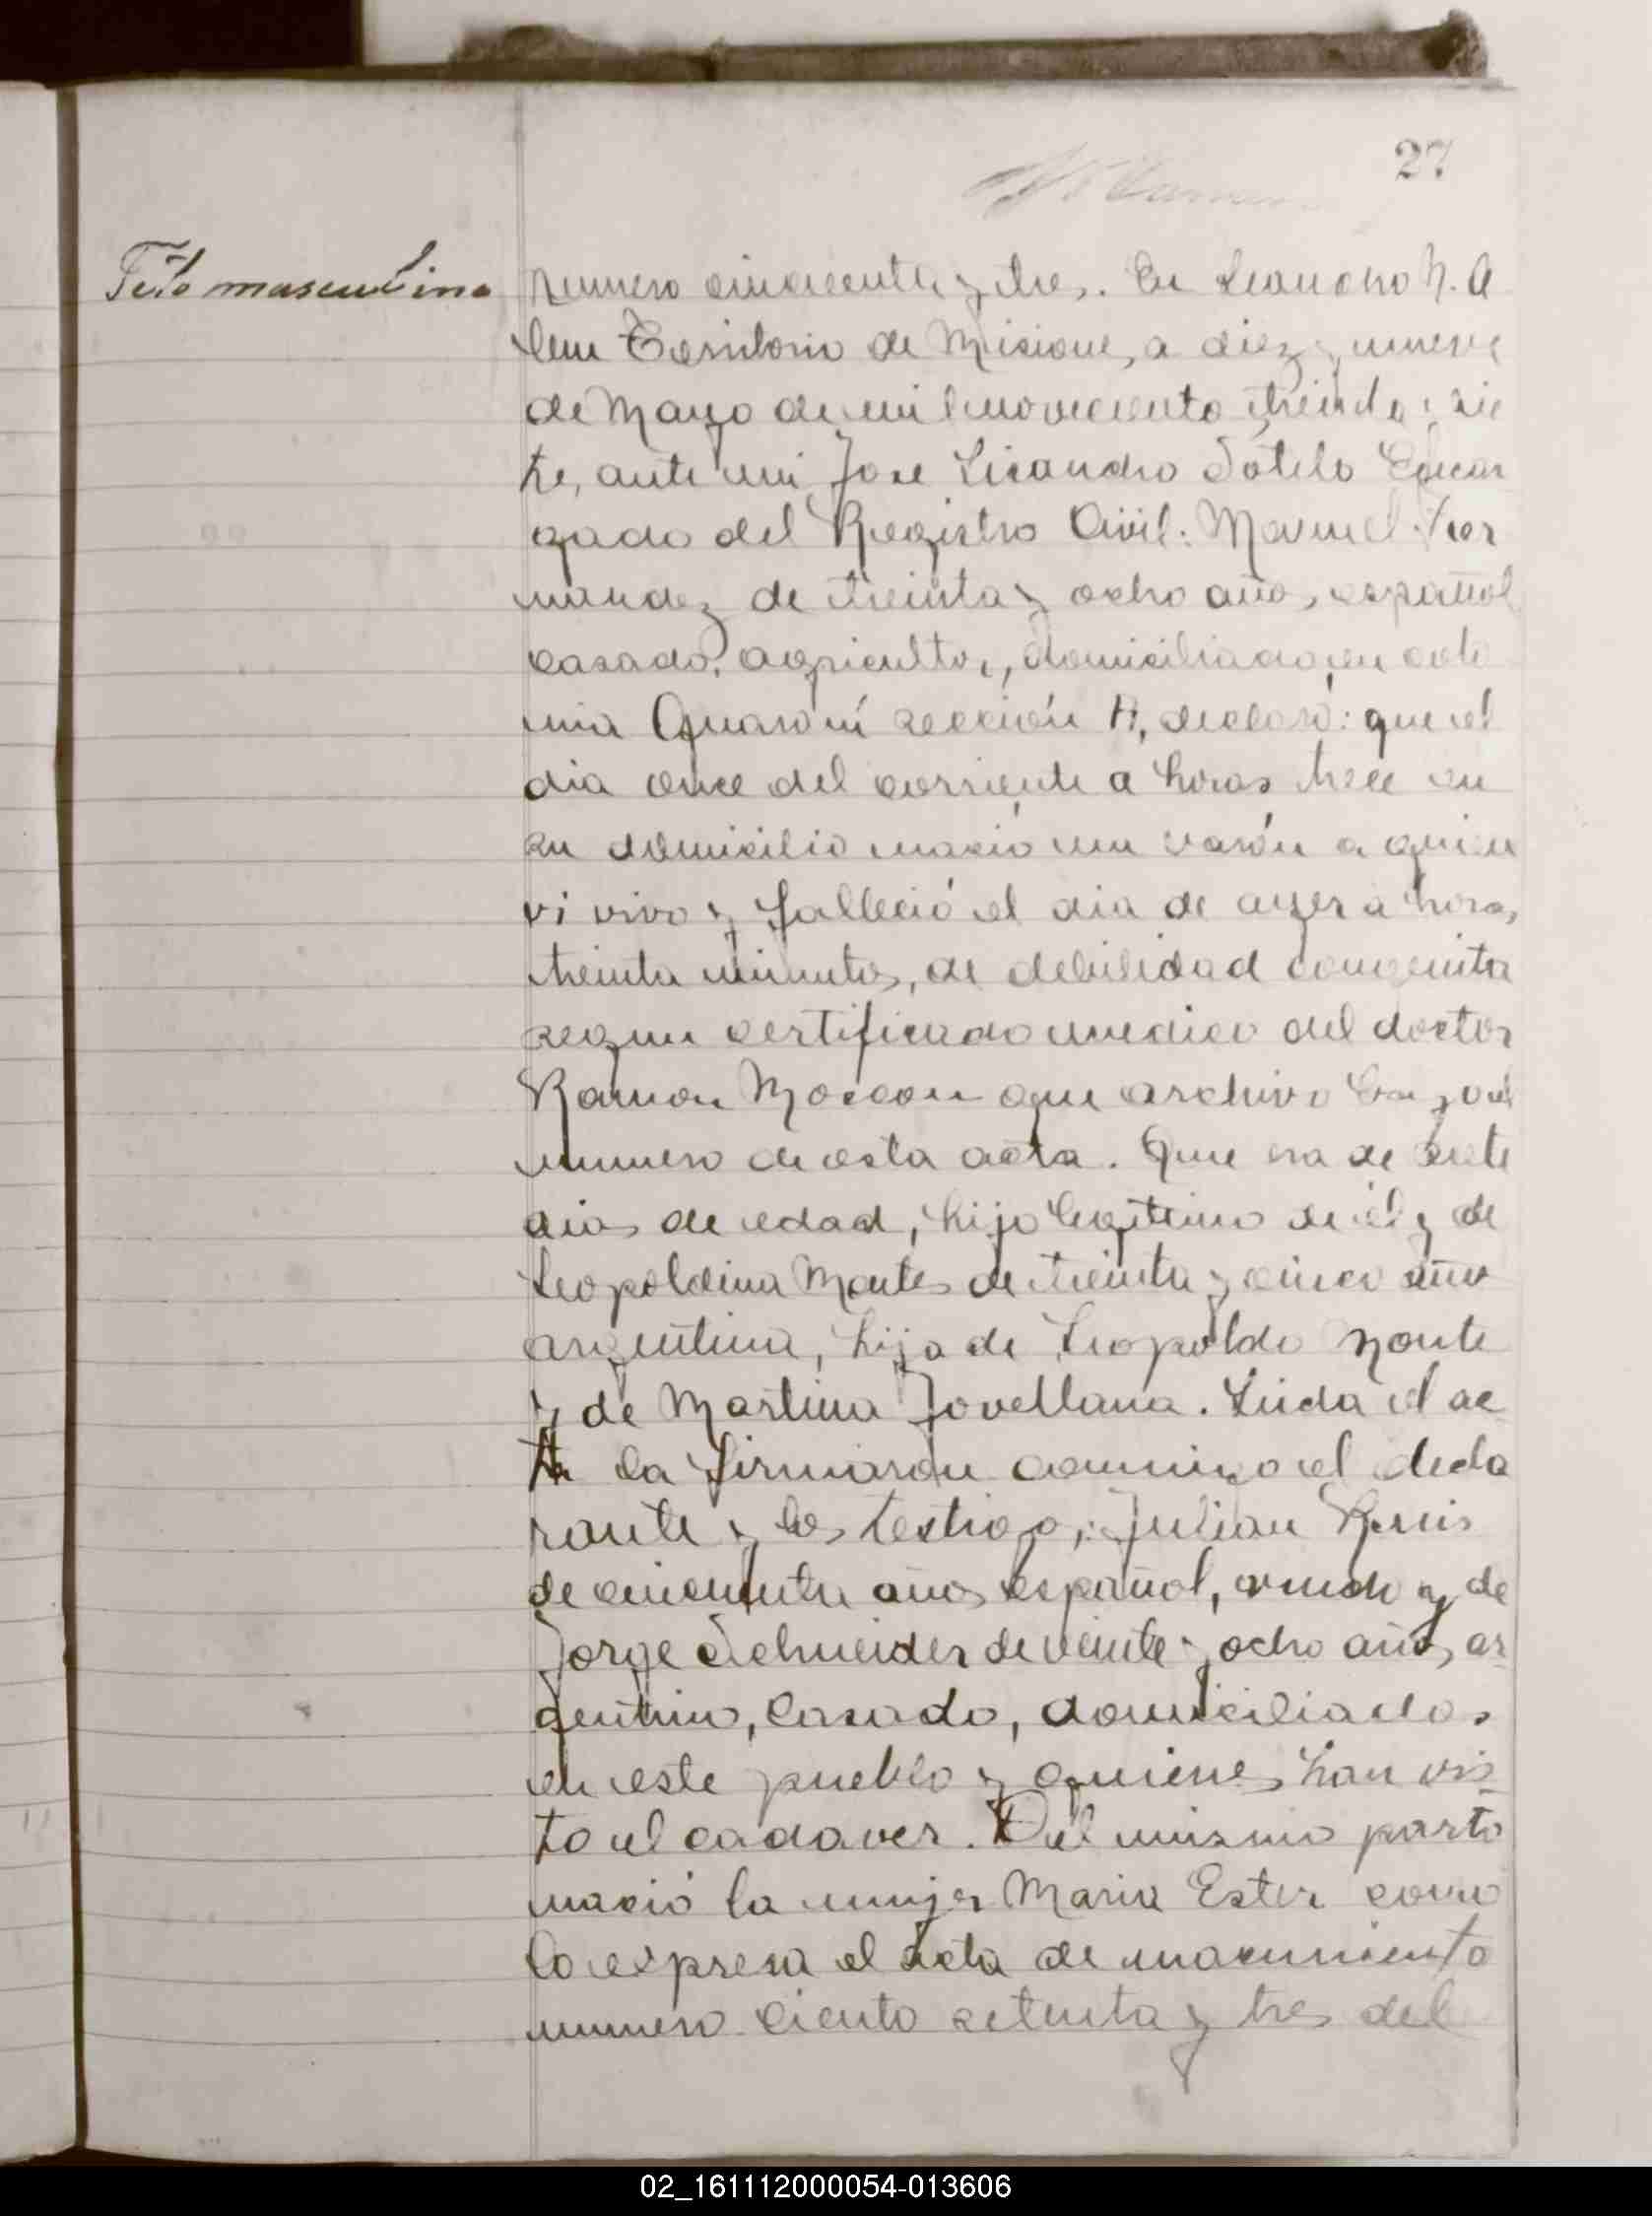 27
Feto masculino
Numero cincuenta y tres. En Leandro N. A
lem Territorio de Misiones, a diez y nueve
de Mayo de mil novecientos treinta y sie
te, ante mi, Jose Lisandro Sotelo Encar
gado del Registro Civil: Manuel Fer
nandez de treinta y ocho años, español
casado, agricultor, domiciliado en colo
nia Guaraní sección A, declaró: que el
dia once del corriente a horas trece en
su domicilio nació un varón a quien
vi vivo y falleció el dia de ayer a horas
treinta minutos, de debilidad congenita
segun certificado medico del doctor
Ramon que archivo bajo el
numero de esta acta. Que era de siete
dias de edad, hijo legitimo de él y de
Leopoldina Montes de treinta y cinco años
argentina, hija de Leopoldo Monte
y de Martina Jovellana. Leida el ac
ta la firmaron conmigo el decla
rante y los testigos: Julian Ruis
de cincuenta años español, viudo y de
Jorge Schneider de veinte y ocho años, ar
gentino, casado, domiciliados
en este pueblo y quienes han vis
to el cadaver. Del mismo parto
nació la mujer Maria Ester como
lo expresa el acta de nacimiento
numero ciento setenta y tres del
02_161112000054-013606